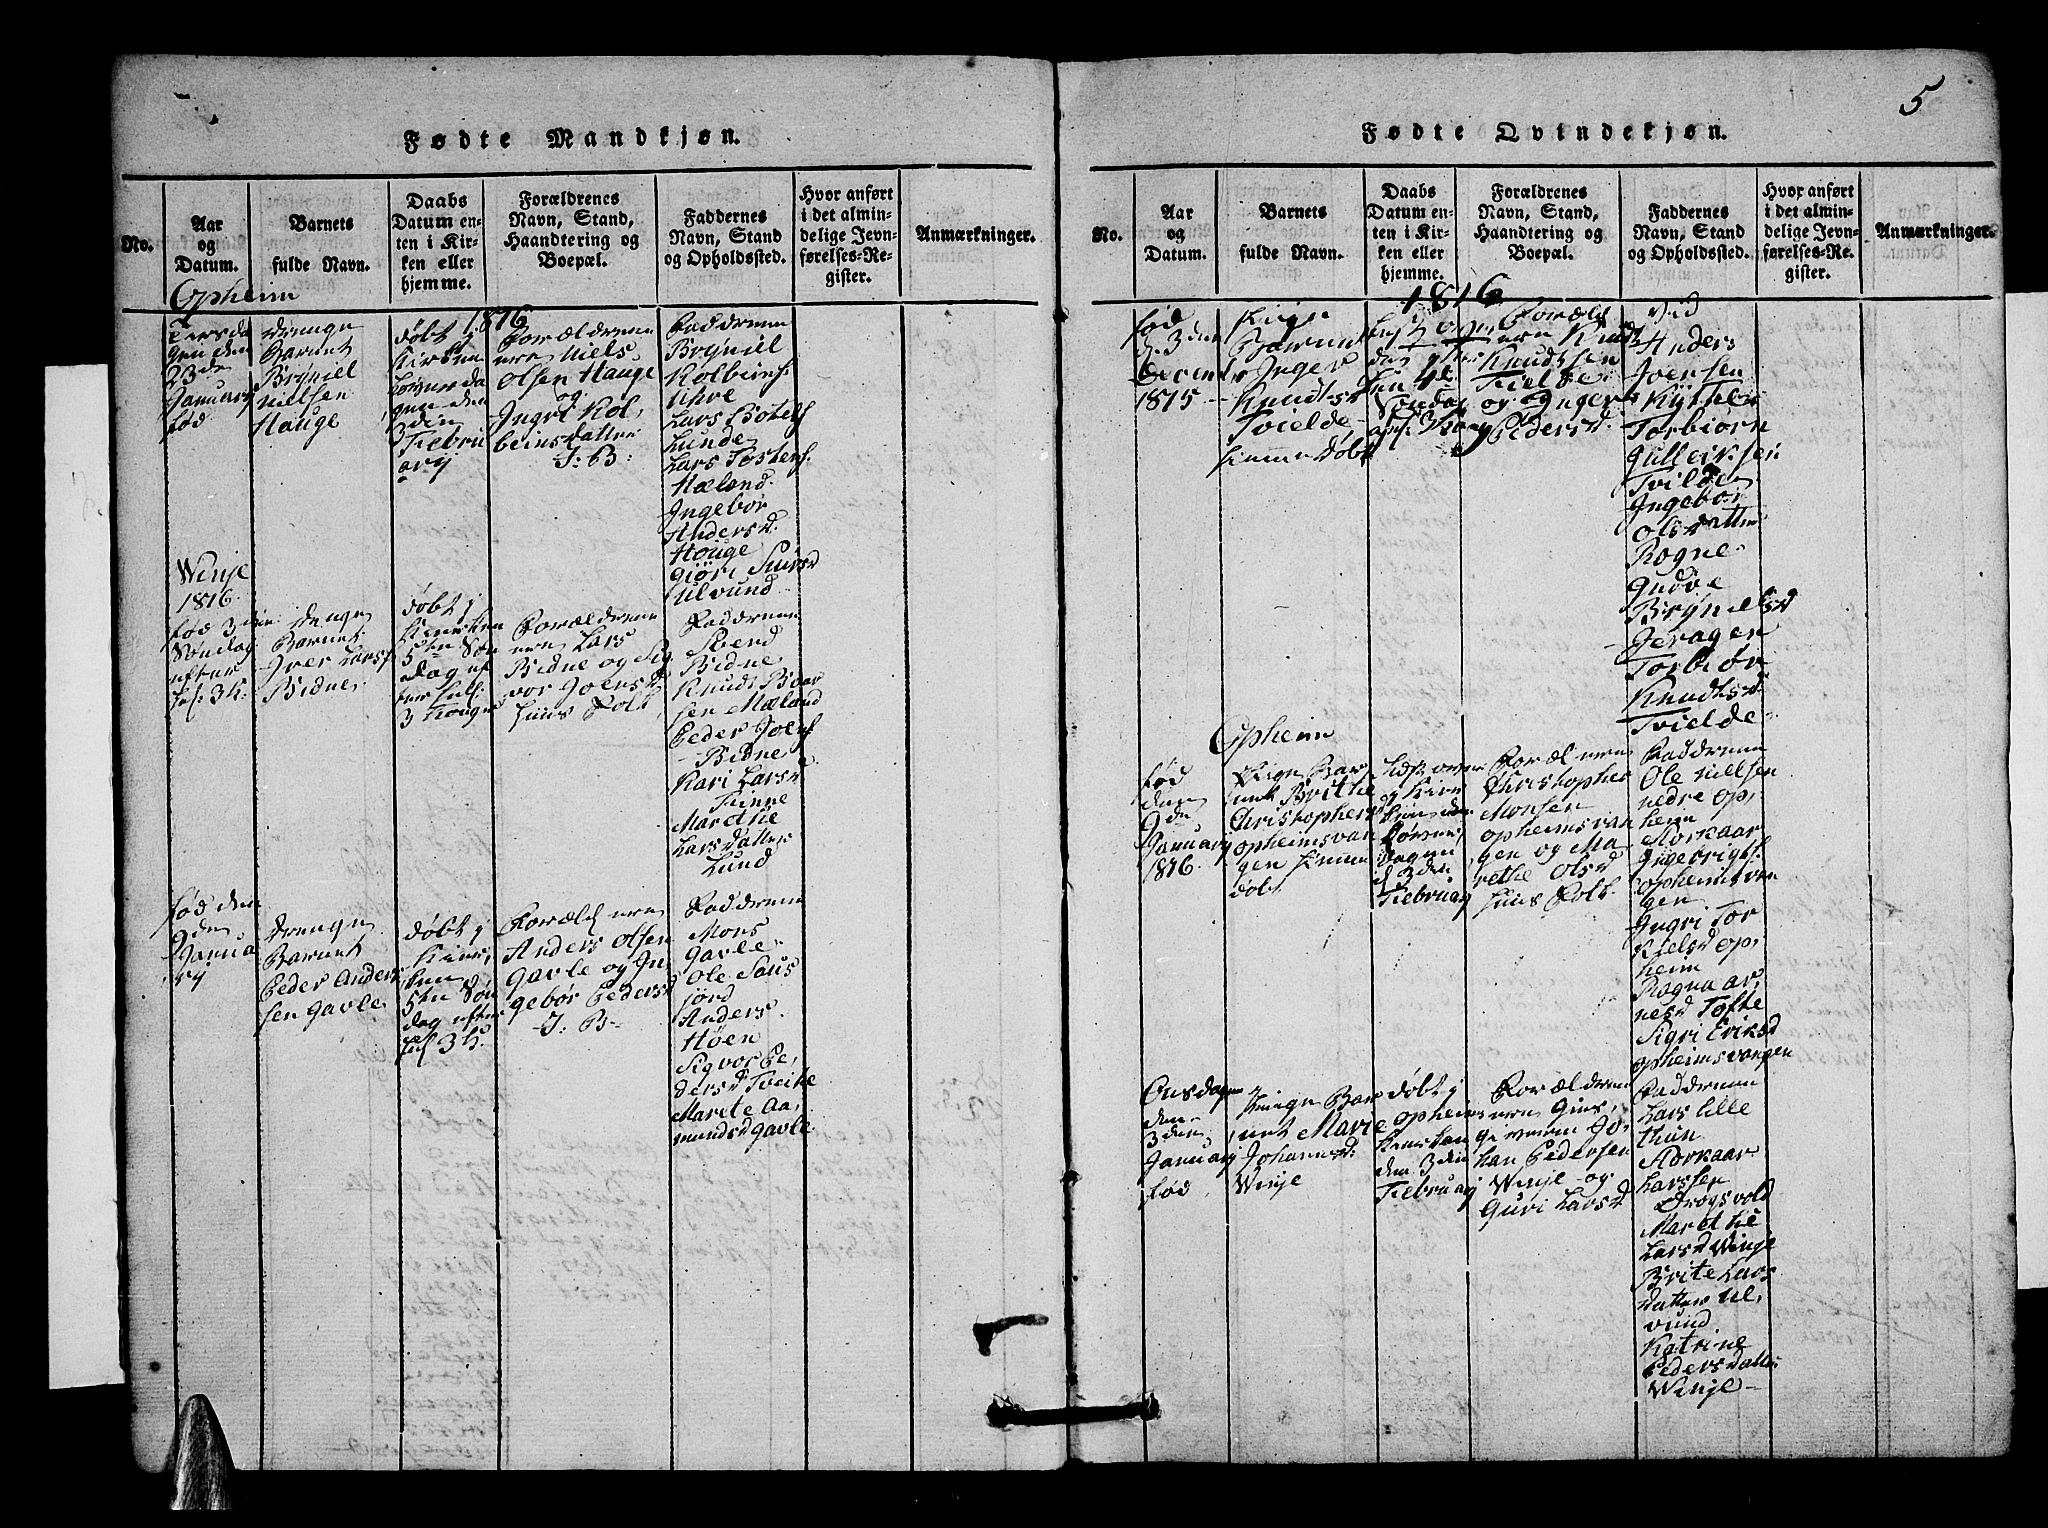 5
Fødte Mandkjøn.
No.
Aar
og
Datum.
Barnets
fulde Navn.
Daabs
Datum en-
ten i Kir-
ken eller
hjemme.
Forældrenes
Navn, Stand,
Haandtering og
Boepæl.
Faddernes
Navn, Stand
og Opholdssted.
Hvor anført
i det almin-
delige Jevn-
førelses-Re-
gister.
Anmærkninger.
Opheim
1816
den
23de
Januarij
fød
drenge
Barnet
Bryniel
Nielsen
Hauge
døbt j
Kirken
den
3den
Februa
arij
Forældrene
Niels
Olsen Hauge
og
Ingri Kol,
beinsdatter
J: B:
Faddrene
Bryniel
Kolbeins:
Uhve
Lars Botolfs
Lunde
Lars Tostens:
Mæland
Ingebor
Andersd.
Houge
Giøri Siursd
Ulvund
Winje
1816
fød 3den
Søndag
efter
h: 3 K.
drenge
Barnet
Iver Larss
Bidne
døbt j
Kirken
5te Søn
dag ef
ter hel:
3 Konge
Forældrene
Lars
Bidne og Sig
vor Joensd
huus Folk
Faddrene
Siverd
Bidne
Knud Boar
sen Mæland
Peder Joens
Bidne
Kari Larsd
Finne
Marethe
Larsdatter
Lund
fød den
9de
Janua
rij
drenge
Barnet
Peder Anders
sen Gavle
døbt j
Kirs,
ken
5te Søn
dag efter
hel 3 K.
Foræld
Anders Olsen
Gavle og In
gebør Pedersd
J: B
Faddrene
Mons
Gavle
Ole Saus
jord
Anders
Høen
Sigvor Pe,
dersd Tveite
Marete Aa,
mundsd Gavle
Fødte Qvindekjøn.
No.
Aar
og
Datum.
Barnets
fulde Navn.
Daabs
Datum en-
ten i Kir-
ken eller
hjemme.
Forældrenes
Navn, Stand,
Haandtering og
Boepæl.
Faddernes
Navn, Stand
og Opholdssted.
Hvor anført
i det almin-
delige Jevn-
førelses-Re-
gister.
Anmærkninger.
1816
fød
d. 3den
Decemb
1815
Pige
Barnet
Inger
Knudtsd
Tvielde
hiemme døbt
4de
Søndag
Knud
Knudtsen
Tvielde
og Inger
Pedersd.
Anders
Joensen
Kythle
Torbiørn
Gulleiksen
Tvilde
Ingebor
Olsdatter
Rogne
Gudve
Brynielsd
Jeragen
Torbiør
Knudtsd
Tvielde
Opheim
fød
den
9de
Januarij
1816
Pige Bar
net Brithe
Christophersd
opheimsvan
gen hiemme
døbt
j Kir
ken
d 3den
Februarij
Foræl
Christopher
Monsen
opheimsvan
gen og Ma
rethe Olsd
huus Folk
Faddrene
Ole Nielsen
nedre op,
heim
Storkaar
Ingebrigts
opheimsvan
gen
Ingri Tor
kielsd op,
heim
Ragna ar,
nesd Tofte
Sigri Eriksd
opheimsvangen
Onsdagen
den
3den
Januarij
fød
Pige Bar
net Marie
Johannsd
Winje
døbt j
opheims
Kirken
den 3den
Februarij
Forældrene
Giest,
giveren Jo,
han Pedersen
Winje og
Guri Larsd
Faddrene
Lars Lille
thun
Storkaar
Larssen
Drogsvold
Marethe
Larsd Winje
Brite Lars
datter Ul,
vund
Katrine
Pedersdatter
Winje